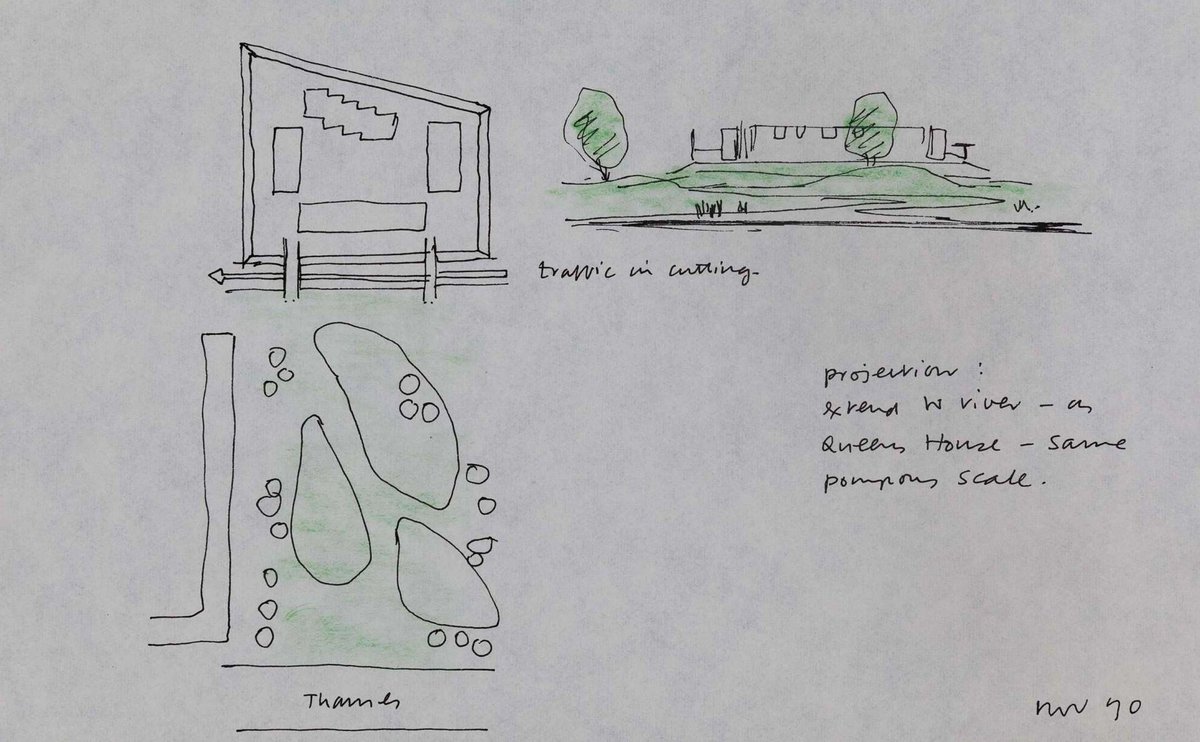 traffic in cutting.
projection :
extend to river – as
Queens House – same
pompous scale.
Thames
nov 90